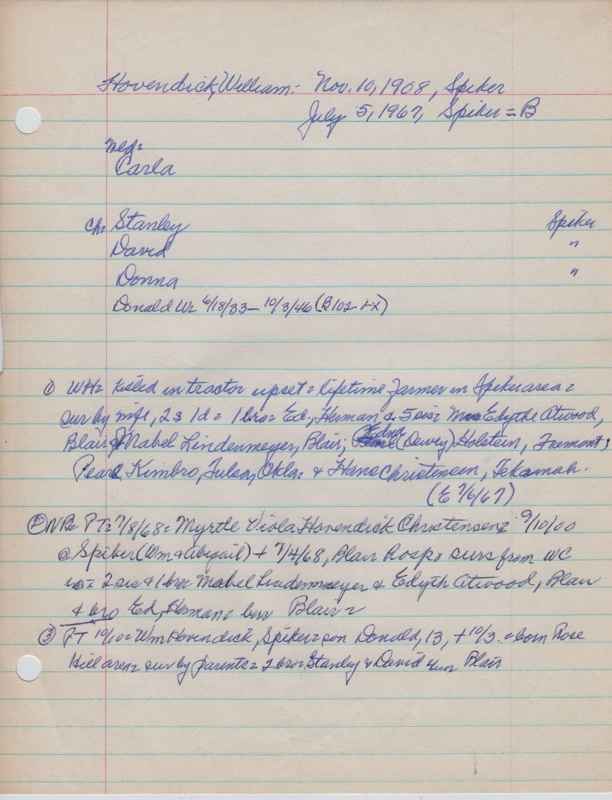 Hovendick, William:- Nov. 10, 1908, Spiker
July 5, 1967, Spiker = B
md=
Carla
ch= Stanley Spiker
David "
Donna "
Donald Wr 6/18/33 - 10/3/46 (B102-tx)
① WH= killed in tractor upset = lifetime farmer in Spiker area =
sur by wife, 2s 1d = 1 bro = Ed, Herman, a 5 sis= Mrs Edythe Atwood,
Blair & Mabel Lindenmeyer, Blair; Edna (Dewey) Holstein, Fremont;
Pearl Kimbro, Tulsa, Okla. & Hans Christensen, Tekamah.
(E 7/6/67)
② PT= 7/8/68= Myrtle Viola Hovendick Christensen= 9/10/00
@ Spiker (Wm & Abigail) + 7/4/68, Blair Hosp= survs from WC
2 sis & 1 bro= Mabel Lindenmeyer & Edyth Atwood, Blair
& bro Ed, Herman= bur Blair =
③ PT 10/10= Wm Hovendick, Spiker= son Donald, 13, + 10/3. = born Rose
Hill area= sur by parents= 2 bro= Stanley & David = bur Blair